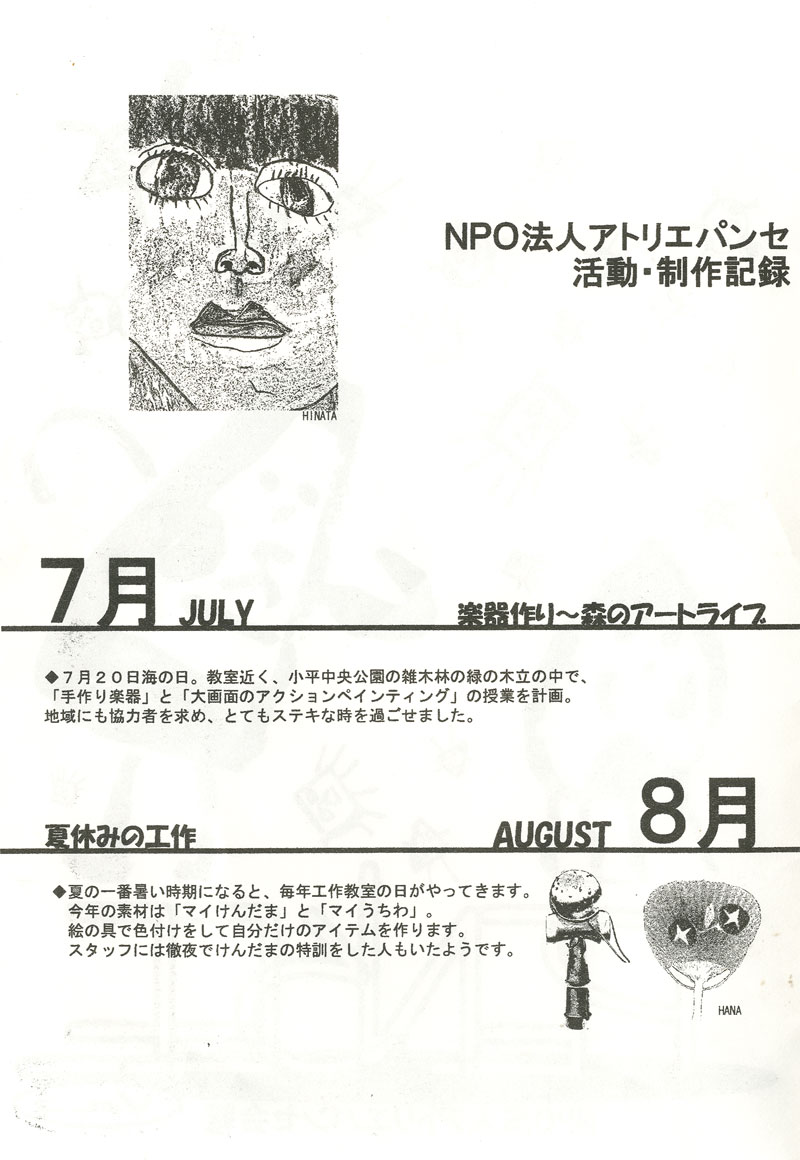 NPO法人アトリエパンセ
活動・制作記録
HINATA
7月 JULY 楽器作り～森のアートライブ
◆７月２０日海の日。教室近く、小平中央公園の雑木林の緑の木立の中で、
「手作り楽器」と「大画面のアクションペインティング」の授業を計画。
地域にも協力者を求め、とてもステキな時を過ごせました。
夏休みの工作 AUGUST 8月
◆夏の一番暑い時期になると、毎年工作教室の日がやってきます。
今年の素材は「マイけんだま」と「マイうちわ」。
絵の具で色付けをして自分だけのアイテムを作ります。
スタッフには徹夜でけんだまの特訓をした人もいたようです。
HANA